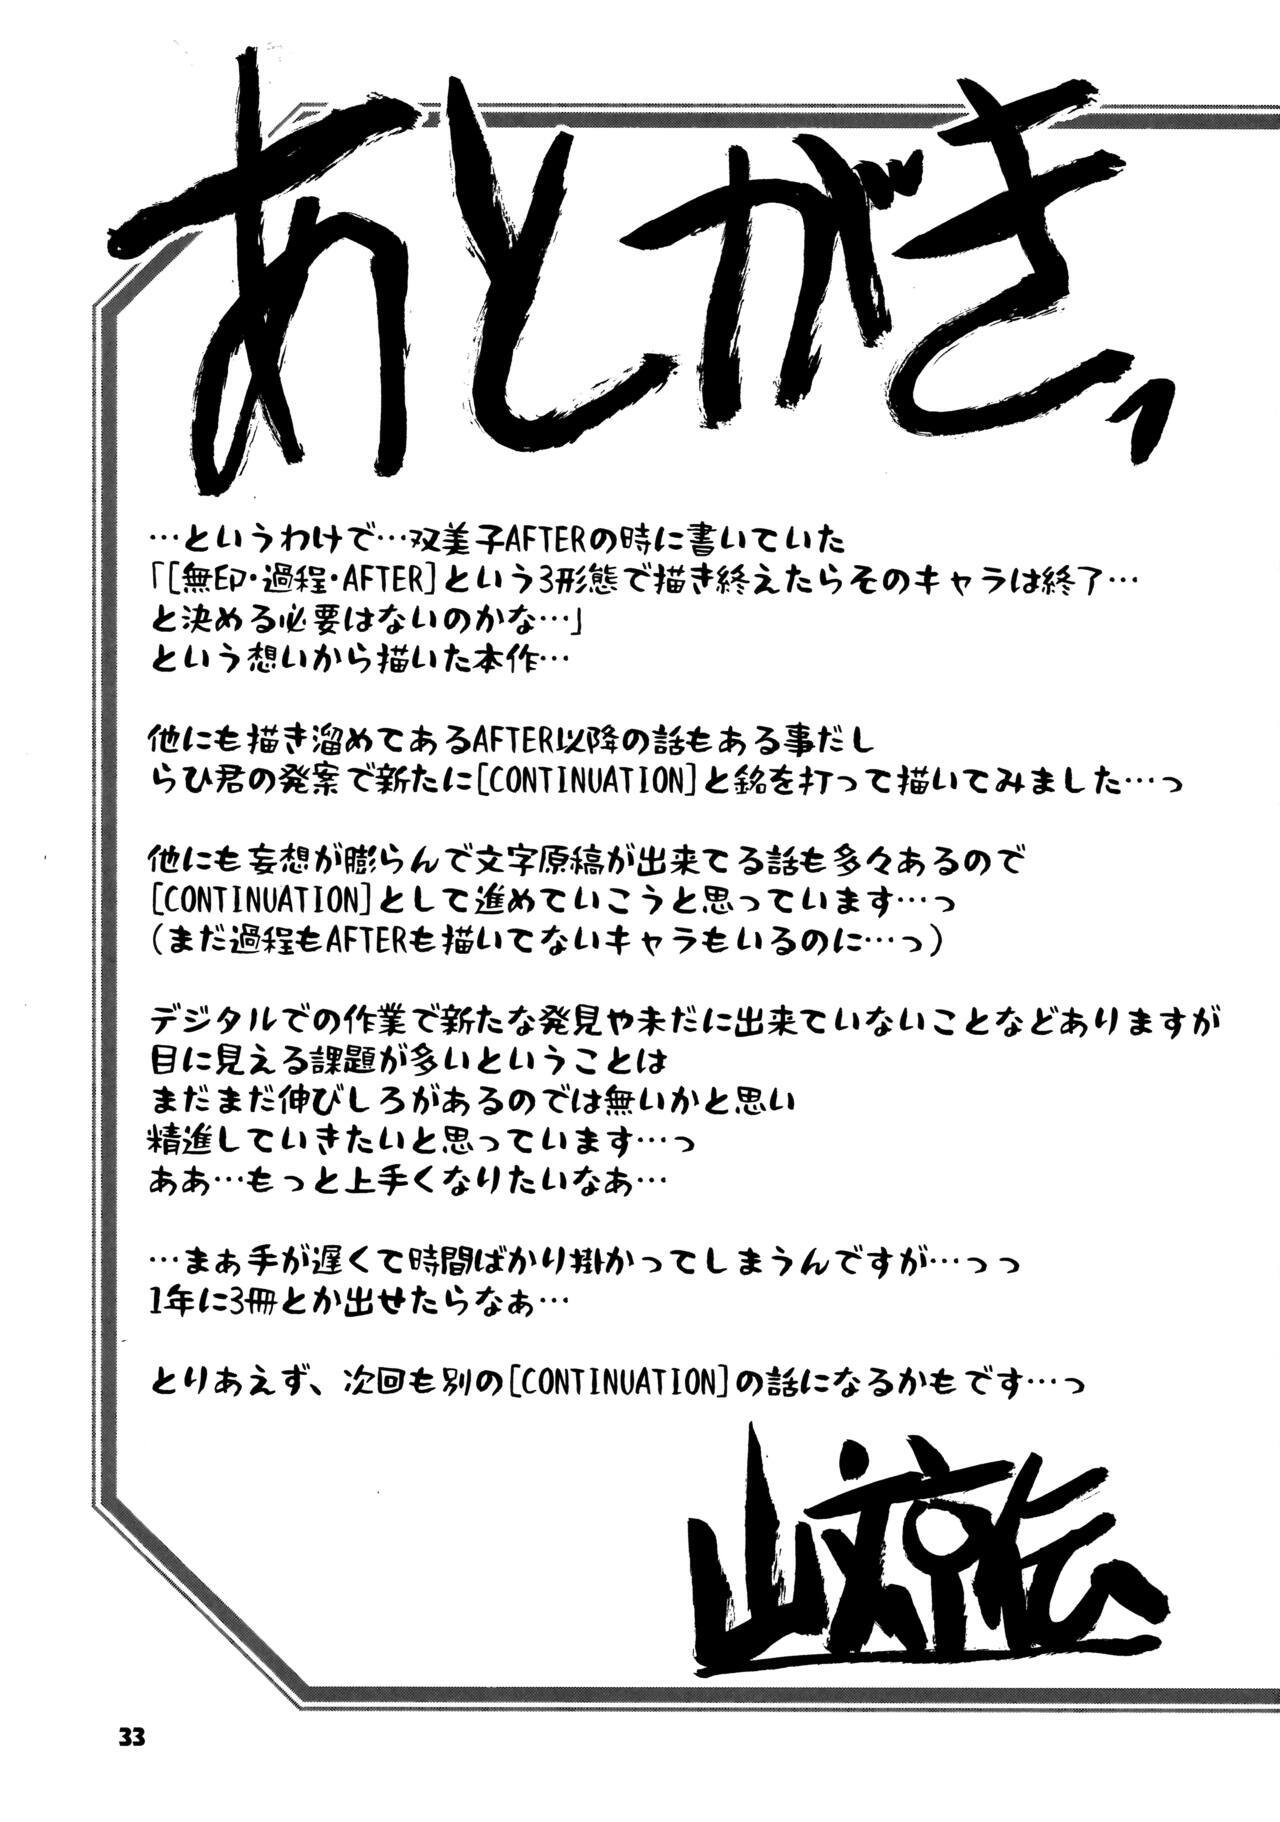 あとがき、
…というわけで…双美子AFTERの時に書いていた
「[無印・過程・AFTER]という3形態で描き終えたらそのキャラは終了…
と決める必要はないのかな…」
という想いから描いた本作…
他にも描き溜めてあるAFTER以降の話もある事だし
らひ君の発案で新たに[CONTINUATION]と銘を打って描いてみました…っ
他にも妄想が膨らんで文字原稿が出来てる話も多々あるので
[CONTINUATION]として進めていこうと思っています…っ
(まだ過程もAFTERも描いてないキャラもいるのに…っ)
デジタルでの作業で新たな発見や未だに出来ていないことなどありますが
目に見える課題が多いということは
まだまだ伸びしろがあるのでは無いかと思い
精進していきたいと思っています…っ
ああ…もっと上手くなりたいなあ…
…まぁ手が遅くて時間ばかり掛かってしまうんですが…っっ
1年に3冊とか出せたらなぁ…
とりあえず、次回も別の[CONTINUATION]の話になるかもです…っ
山文京伝
33